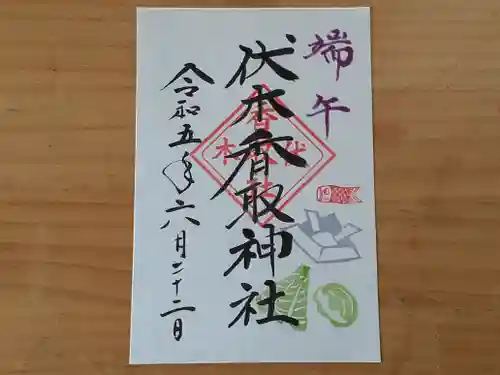 端午
伏木香取神社
令和五年六月二十二日